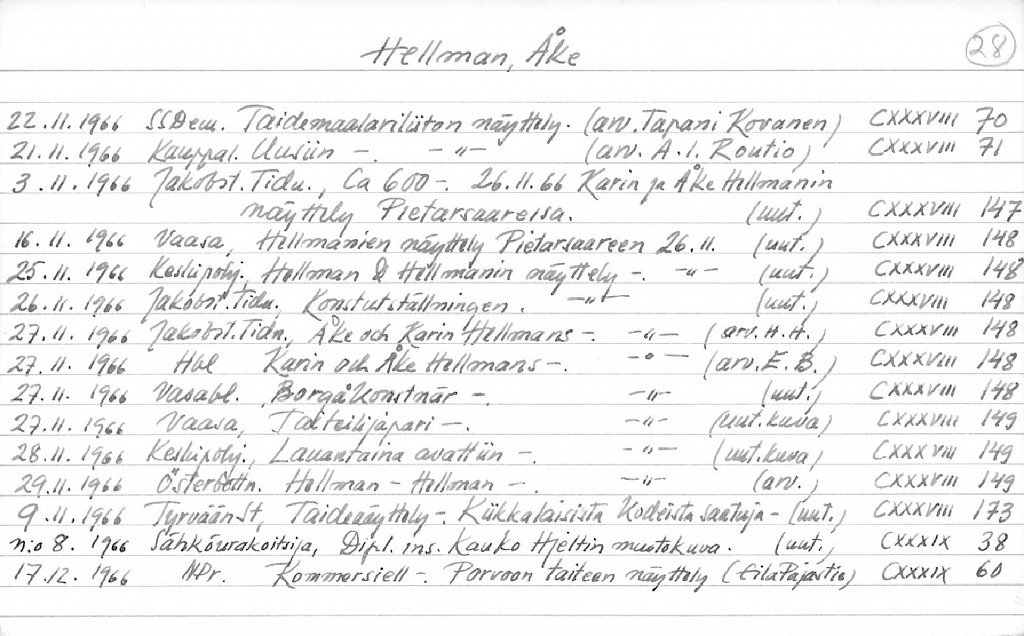 Hellman, Åke 28
22.11.1966 SSDem. Taidemaalariliiton näyttely. (arv. Tapani Kovanen) CXXXVIII 70
21.11.1966 Kauppal. Uusiin -. -"- (arv. A.I. Routio) CXXXVIII 71
3.11.1966 Jakobst. Tidn., Ca 600 -. 26.11.66 Karin ja Åke Hellmanin
näyttely Pietarsaaressa. (uut.) CXXXVIII 147
16.11.1966 Vaasa, Hellmanien näyttely Pietarsaareen 26.11. (uut.) CXXXVIII 148
25.11.1966 Keskipohj., Hellman & Hellmanin näyttely -. -"- (uut.) CXXXVIII 148
26.11.1966 Jakobst. Tidn., Konstutställningen. -"- (uut.) CXXXVIII 148
27.11.1966 Jakobst. Tidn., Åke och Karin Hellmans -. -"- (arv. H.H.) CXXXVIII 148
27.11.1966 Hbl Karin och Åke Hellmans -. -"- (arv. E.B.) CXXXVIII 148
27.11.1966 Vasabl. Borgåkonstnär -. -"- (uut.) CXXXVIII 148
27.11.1966 Vaasa, Taiteilijapari -. -"- (uut. kuva) CXXXVIII 149
28.11.1966 Keskipohj., Lauantaina avattiin -. -"- (uut. kuva) CXXXVIII 149
29.11.1966 Österbottn. Hellman - Hellman -. -"- (arv.) CXXXVIII 149
9.11.1966 TyrväänSt, Taidenäyttely -. Kiikkalaisista kodeista saatuja - (uut.) CXXXVIII 173
n:o 8. 1966 Sähköurakoitsija, Dipl. ins. Kauko Hjeltin muotokuva. (uut.) CXXXIX 38
17.12.1966 NPr. Kommersiell -. Porvoon taiteen näyttely (Eila Pajastie) CXXXIX 60